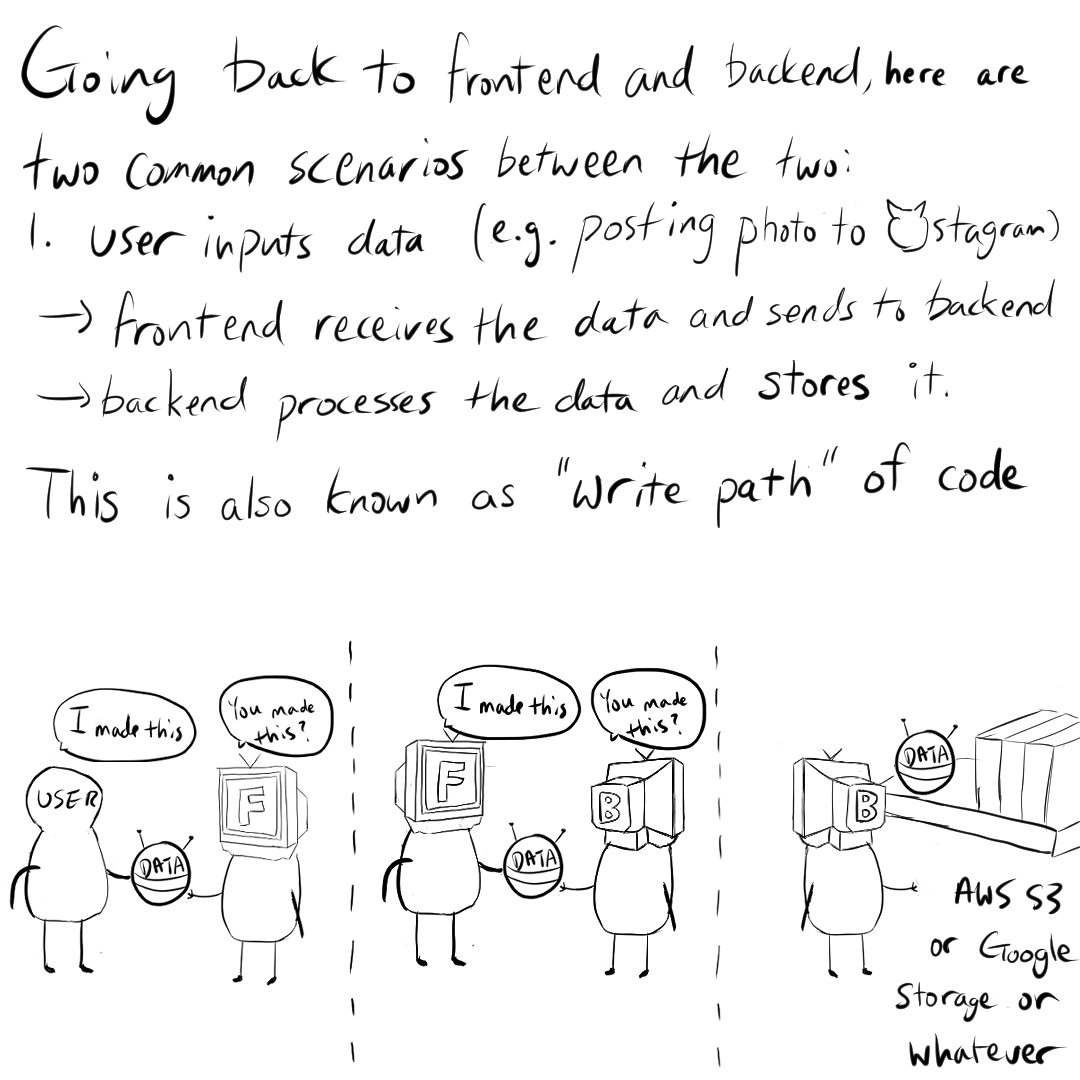 Going back to frontend and backend, here are
two common scenarios between the two:
1. user inputs data (e.g. posting photo to stagram)
→ frontend receives the data and sends to backend
→ backend processes the data and stores it.
This is also known as "write path" of code
I made this
You made
this?
USER
F
DATA
I made this
You made
this?
F
B
DATA
B
DATA
AWS S3
or Google
Storage or
whatever